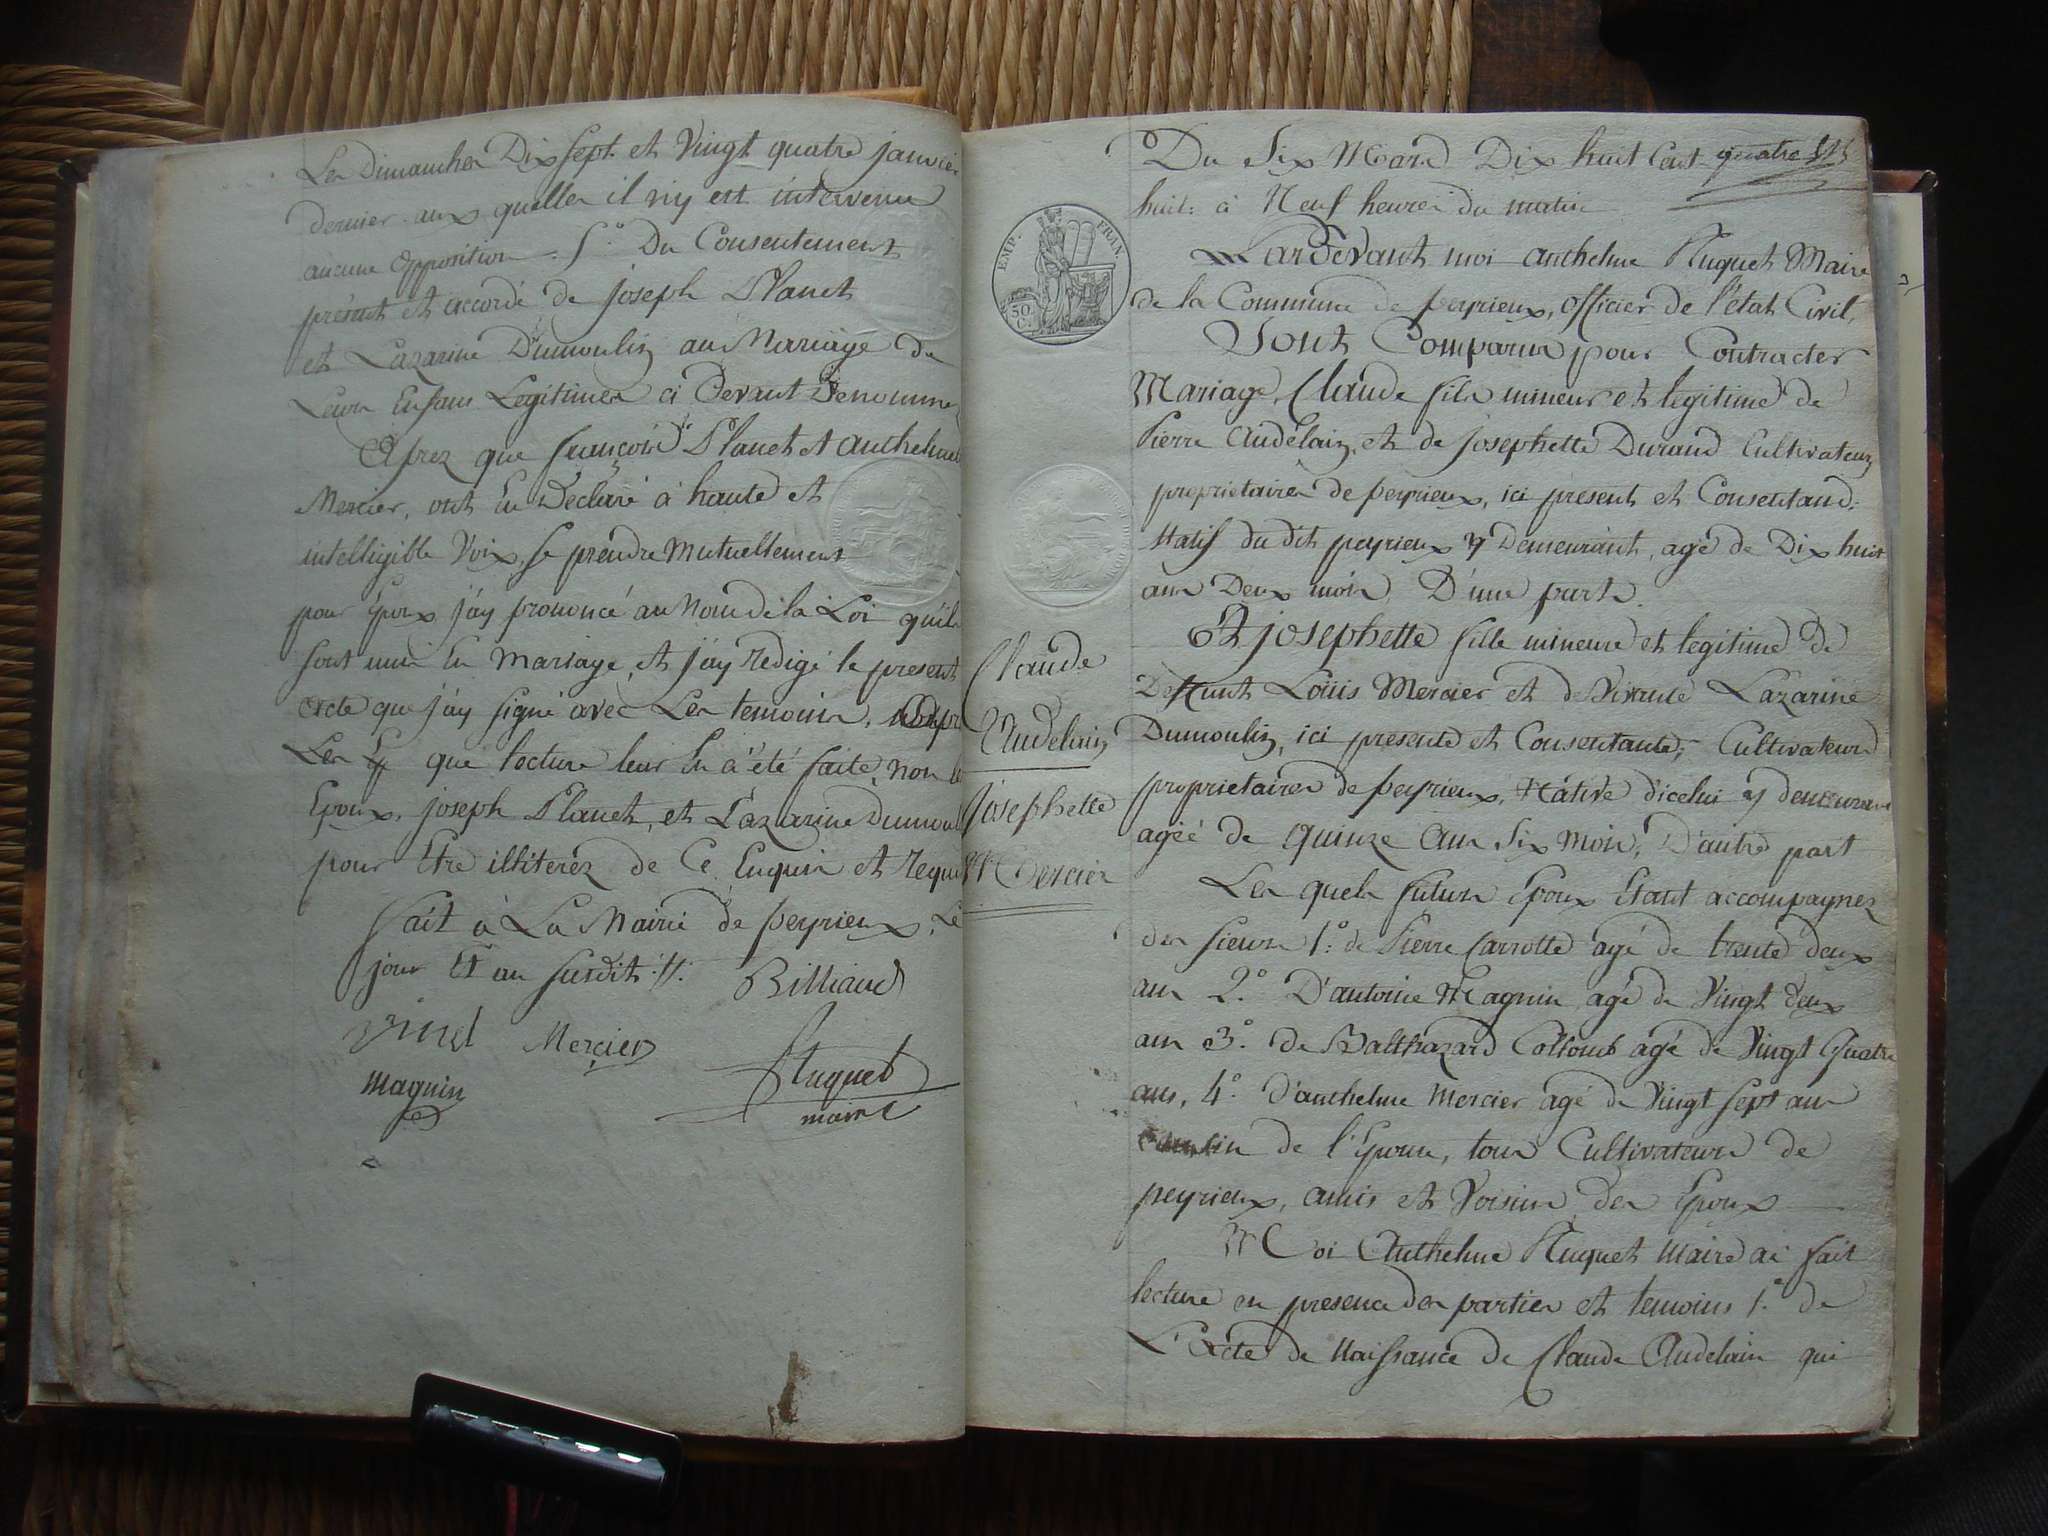 Les Dimanches Dix Sept et Vingt quatre janvier
dernier aux quelles il n'y est intervenue
aucune opposition. 5°. Du Consentement
présent et accordé de joseph Planet
et Lazarine Dumoulin au Mariage de
Leurs Enfans Legitimes ci Devant Denommé
Aprez que françois Planet et anthelme
Mercier, ont En Declaré à haute et
intelligible Voix, se prendre Mutuellement
pour Epoux j'ay prononcé au Nom de la Loi qu'ils
sont unis En Mariage, et j'ay redigé le present
acte que j'ay signé avec Les temoins,
Les que lecture leur En a été faite, non les
Epoux, joseph Planet, et Lazarine Dumoulin
pour Etre illiterez de Ce Enquis et requis
fait à La Mairie de peyrieux, Le
jour Et an susdit ://: Billiand
Vinet Mercier
Magnin Huguet
maire
EMP. FRAN.
50 C.
Claude
Audelain
Josephette
Mercier
Du Six Mars Dix huit Cent quatre
huit: à Neuf heures du matin
Pardevant moi anthelme Huguet Maire
de la Commune de peyrieux, officier de l'état Civil,
Sont Comparus pour Contracter
Mariage, Claude fils mineur et legitime de
Pierre Audelain, et de Josephette Durand Cultivateurs
proprietaires de peyrieux, ici present et Consentand;
Natif du dit peyrieux y Demeurant, agé de Dix huit
ans Deux mois D'une part.
Et josephette fille mineure et legitime de
Deffunt Loüis Mercier et de Vivante Lazarine
Dumoulin, ici presente et Consentante; Cultivateurs
proprietaires de peyrieux, Native d'icelui y demeurant
agéé de quinze ans Six Mois, D'autre part
Les quels futurs Epoux Etant accompagnez
des sieurs 1°: de Pierre Carrotte agé de trente deux
ans 2°. D'antoine Magnin agé de Vingt deux
ans 3°. de Balthazard Collomb agé de Vingt Quatre
ans, 4°. d'anthelme Mercier agé de Vingt sept ans
cousin de l'Epouse, tous Cultivateurs de
peyrieux, amis et Voisins des Epoux
Moi Anthelme Huguet Maire ai fait
lecture en presence des parties et temoins 1°. de
L'Acte de Naissance de Claude Audelain qui